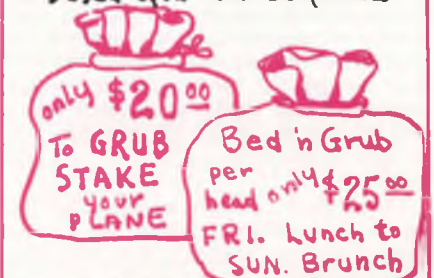 only $20.00
To GRUB
STAKE
your
PLANE
Bed 'n Grub
per
head only $25.00
FRI. Lunch to
SUN. Brunch